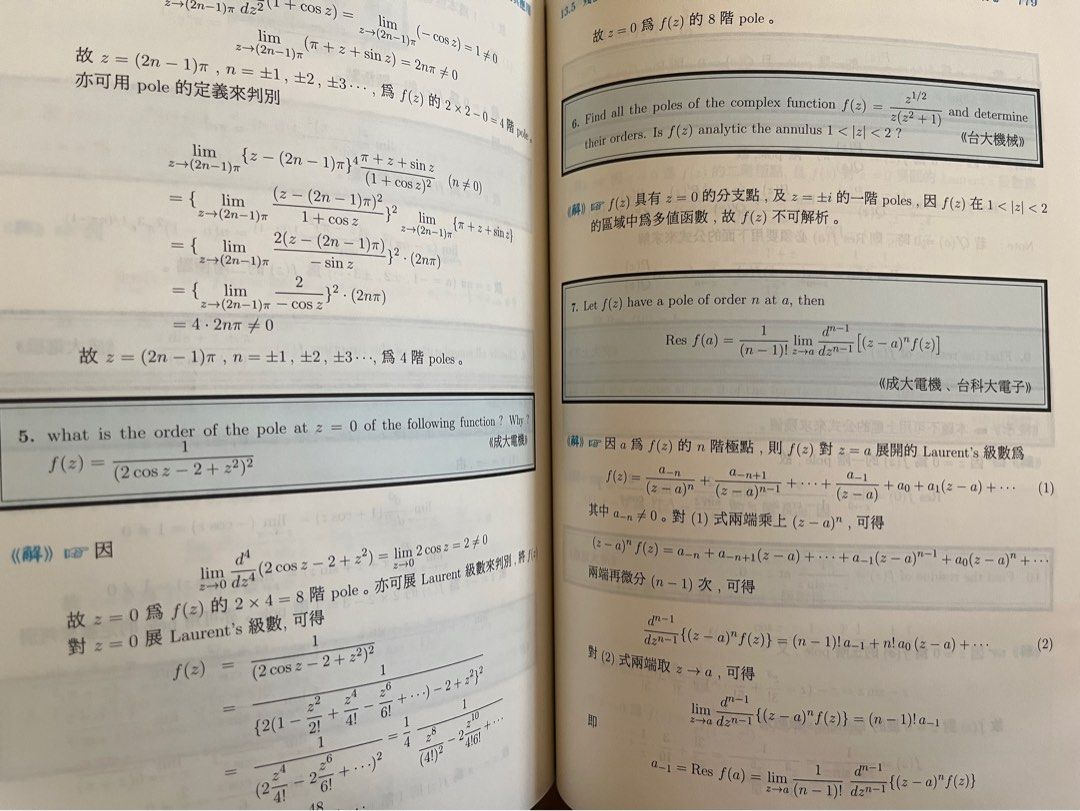 lim_{z→(2n−1)π} d/dz² (1 + cos z) = lim_{z→(2n−1)π} (−cos z) = 1 ≠ 0
lim_{z→(2n−1)π} (π + z + sin z) = 2nπ ≠ 0
故 z = (2n − 1)π , n = ±1 , ±2 , ±3⋯ , 爲 f(z) 的 2 × 2 − 0 = 4 階 pole。
亦可用 pole 的定義來判別
lim_{z→(2n−1)π} {z − (2n − 1)π}⁴ (π + z + sin z)/(1 + cos z)² (n ≠ 0)
= { lim_{z→(2n−1)π} (z − (2n − 1)π)²/(1 + cos z) }² lim_{z→(2n−1)π} {π + z + sin z}
= { lim_{z→(2n−1)π} 2(z − (2n − 1)π)/(− sin z) }² · (2nπ)
= { lim_{z→(2n−1)π} 2/(− cos z) }² · (2nπ)
= 4 · 2nπ ≠ 0
故 z = (2n − 1)π , n = ±1 , ±2 , ±3⋯, 爲 4 階 poles。
5. what is the order of the pole at z = 0 of the following function ? Why ?
f(z) = 1/(2 cos z − 2 + z²)² 《成大電機》
《解》☞ 因
lim_{z→0} d⁴/dz⁴ (2 cos z − 2 + z²) = lim_{z→0} 2 cos z = 2 ≠ 0
故 z = 0 爲 f(z) 的 2 × 4 = 8 階 pole。亦可展 Laurent 級數來判別, 將 f(z)
對 z = 0 展 Laurent's 級數, 可得
f(z) = 1/(2 cos z − 2 + z²)²
= 1/{2(1 − z²/2! + z⁴/4! − z⁶/6! + ⋯) − 2 + z²}²
= 1/(2 z⁴/4! − 2 z⁶/6! + ⋯)² = 1/4 1/(z⁸/(4!)² − 2 z¹⁰/4!6! + ⋯)
13.5
779
故 z = 0 爲 f(z) 的 8 階 pole。
6. Find all the poles of the complex function f(z) = z^{1/2}/z(z² + 1) and determine
their orders. Is f(z) analytic the annulus 1 < |z| < 2 ? 《台大機械》
《解》☞ f(z) 具有 z = 0 的分支點 , 及 z = ±i 的一階 poles , 因 f(z) 在 1 < |z| < 2
的區域中爲多值函數 , 故 f(z) 不可解析。
7. Let f(z) have a pole of order n at a, then
Res f(a) = 1/(n − 1)! lim_{z→a} d^{n−1}/dz^{n−1} [(z − a)ⁿ f(z)]
《成大電機、台科大電子》
《解》☞ 因 a 爲 f(z) 的 n 階極點 , 則 f(z) 對 z = a 展開的 Laurent's 級數爲
f(z) = a_{−n}/(z − a)ⁿ + a_{−n+1}/(z − a)^{n−1} + ⋯ + a_{−1}/(z − a) + a₀ + a₁(z − a) + ⋯ (1)
其中 a_{−n} ≠ 0。對 (1) 式兩端乘上 (z − a)ⁿ , 可得
(z − a)ⁿ f(z) = a_{−n} + a_{−n+1}(z − a) + ⋯ + a_{−1}(z − a)^{n−1} + a₀(z − a)ⁿ + ⋯
兩端再微分 (n − 1) 次 , 可得
d^{n−1}/dz^{n−1} {(z − a)ⁿ f(z)} = (n − 1)! a_{−1} + n! a₀ (z − a) + ⋯ (2)
對 (2) 式兩端取 z → a , 可得
lim_{z→a} d^{n−1}/dz^{n−1} {(z − a)ⁿ f(z)} = (n − 1)! a_{−1}
即
a_{−1} = Res f(a) = lim_{z→a} 1/(n − 1)! d^{n−1}/dz^{n−1} {(z − a)ⁿ f(z)}